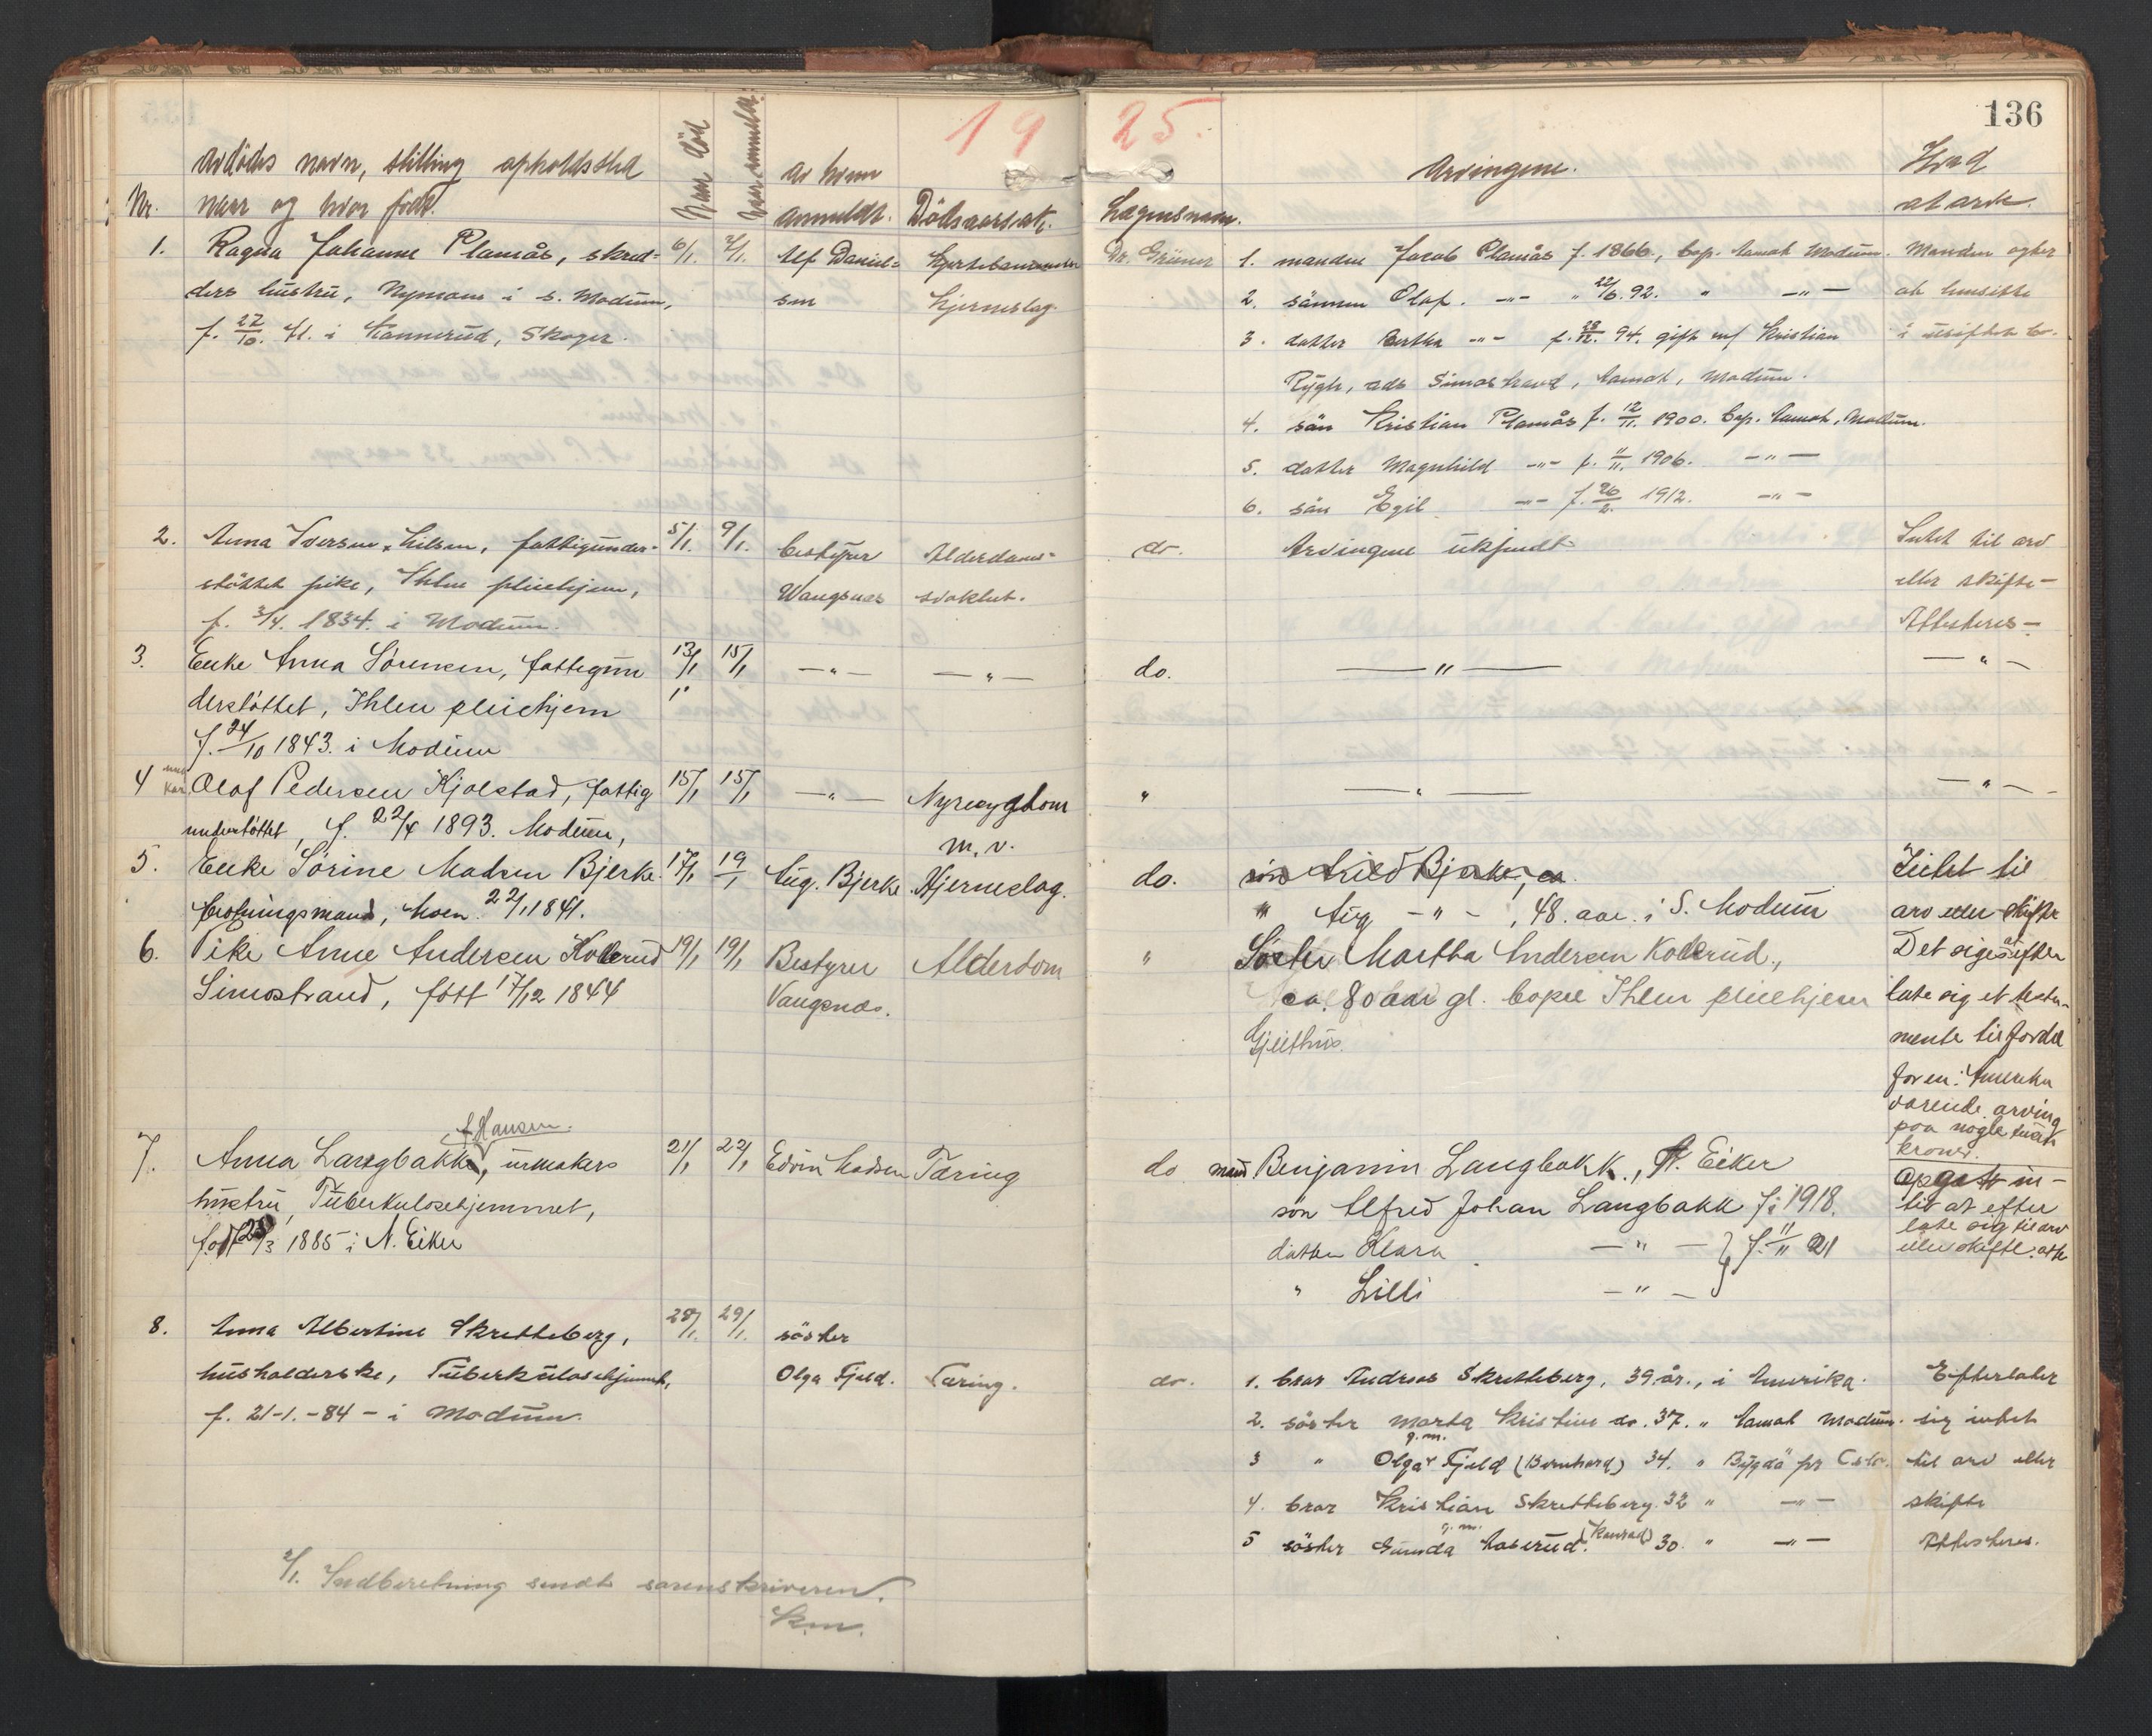 136
19 25.
Nr.
Avdödes navn, stilling opholdssted
naar og hvor födt.
Naar död
Naar anmeldt.
Av hvem
anmeldt.
Dödsaarsak.
Lægens navn.
Arvingene.
Hvad
at arve.
1. Ragna Johanne Plamås, skred-
ders hustru, Nymoen i s. Modum,
f. 27/10. 71. i Hannerud, Skoger.
6/1. 7/1.
Alf Daniel-
sen
Hjertebetændelse
Hjerneslag.
Dr. Grüner
1. manden Jacob Plamås f. 1866., bop. Aamot Modum.
2. sönnen Olaf. -"- " 22/6. 92. " -"-
3. datter Bertha -"- f. 23/12. 94. gift m/ Kristian
Rygh, ads Simostrand, Aamot, Modum.
4. sön Kristian Plamås f. 12/11. 1900. bop. Aamot, Modum.
5. datter Magnhild -"- f. 11/11. 1906. -"-
6. sön Egil -"- f. 26/2. 1912. -"-
Manden agter
at hensitte
i uskiftet bo.
2. Anna Iversen Nilsen, fattigunder-
støttet pike, Ihlen pleiehjem,
f. 3/4. 1834. i Modum.
5/1. 9/1.
bestyrer
Wangsnes
Alderdoms-
svakhet.
do.
Arvingene ukjendt
Intet til arv
eller skifte-
Attesteres-
3. Enke Anna Sörensen, fattigun
derstöttet, Ihlen pleiehjem
f. 24/10 1843. i Modum
13/1 15/1
-"- -"-
do.
-"-
-"-
4 ung kar. Olaf Pedersen Kjølstad, fattig
understöttet, f. 22/4 1893. Modum,
15/1 15/1
-"-
Nyresygdom
m. v.
"
-"-
-"-
5. Enke Sörine Madsen Bjerke.
Moen. 22/1 1841.
17/1 19/1
Aug. Bjerke.
Hjerneslag.
do.
" Aug -"-, 48. aar. i S. Modum
Intet til
arv eller skifte
6. Pike Anne Andersen Kollerud
Simostrand, født 17/12 1844
19/1 19/1
Bestyrer
Vangsnes.
Alderdom
"
Søster Martha Andersen Kollerud,
ca. 80 aar gl. bopæl Ihlen pleiehjem
Gjeithus.
Det siges at efter
late sig et testa-
mente til fordel
for en i Amerika
værende arving
paa nogle tusen
kroner.
7. Anna Langbakk, urmakers
f. Hansen.
hustru, Tuberkulosehjemmet,
født 28/3 1885 i N. Eiker
21/1 22/1
Edvin Madsen
Tæring
do
man Benjamin Langbakk, N. Eiker
søn Alfred Johan Langbakk f. 1918.
datter Klara -"- } f. 11/11 21
" Lilli -"-
Opgit in-
tit at efter
late sig til arv
eller skifte. att.
8. Anna Albertine Skretteberg,
husholderske, Tuberkulosehjemmet,
f. 21-1.-84 - i Modum.
28/1. 29/1.
söster
Olga Fjeld.
Tæring.
do.
1. bror Andreas Skretteberg, 39 år., i Amerika.
2. söster Marta Kristine do. 37. " Aamot Modum.
3 " Olga g. m. Fjeld (Bernhard) 34. " Bygdö pr Oslo.
4. bror Kristian Skretteberg. 32 " -"-
5 söster Gunda g. m. Aaserud. (Konrad) 30. " -"-
Efterlater
sig intet
til arv eller
skifte
Attesteres.
2/1. Indberetning sendt sorenskriveren.